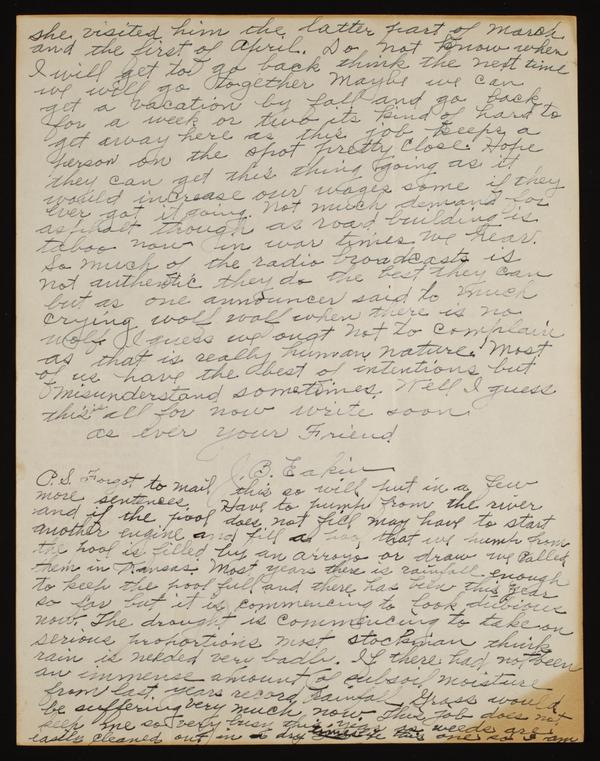 she visited him the latter part of March
and the first of April. Do not know when
I will get to go back think the next time
we will go together Maybe we can
get a vacation by fall and go back
for a week or two its kind of hard to
get away here as this job keeps a
person on the spot pretty close. Hope
they can get this thing going as it
would increase our wages some if they
ever got it going. Not much demand for
asphalt through as road building is
taboo now in war times we hear.
So much of the radio broadcasts is
not authentic they do the best they can
but as one announcer said to much
crying wolf wolf when there is no
wolf. I guess we ougt not to complain
as that is really human nature. Most
of us have the best of intentions but
misunderstand sometimes. Well I guess
this is all for now write soon
as ever your Friend
J. B. Eakin
P.S. Forgot to mail this so will put in a few
more sentences. Have to pump from the river
and if the pool does not fill may have to start
another engine and fill a pool that we pump from
the pool is filled by an arroyo or draw we called
them in Kansas. Most years there is rainfall enough
to keep the pool full and there has been this year
so far but it is commencing to look dubious
now. The drought is commencing to take on
serious proportions most stockman think
rain is needed very badly. If there had not been
an immense amount of subsoil moisture
from last years record rainfall Grass would
be suffering very much now. This job does not
keep me so very busy this year as weeds are
easily cleaned out in a dry time this one so I am